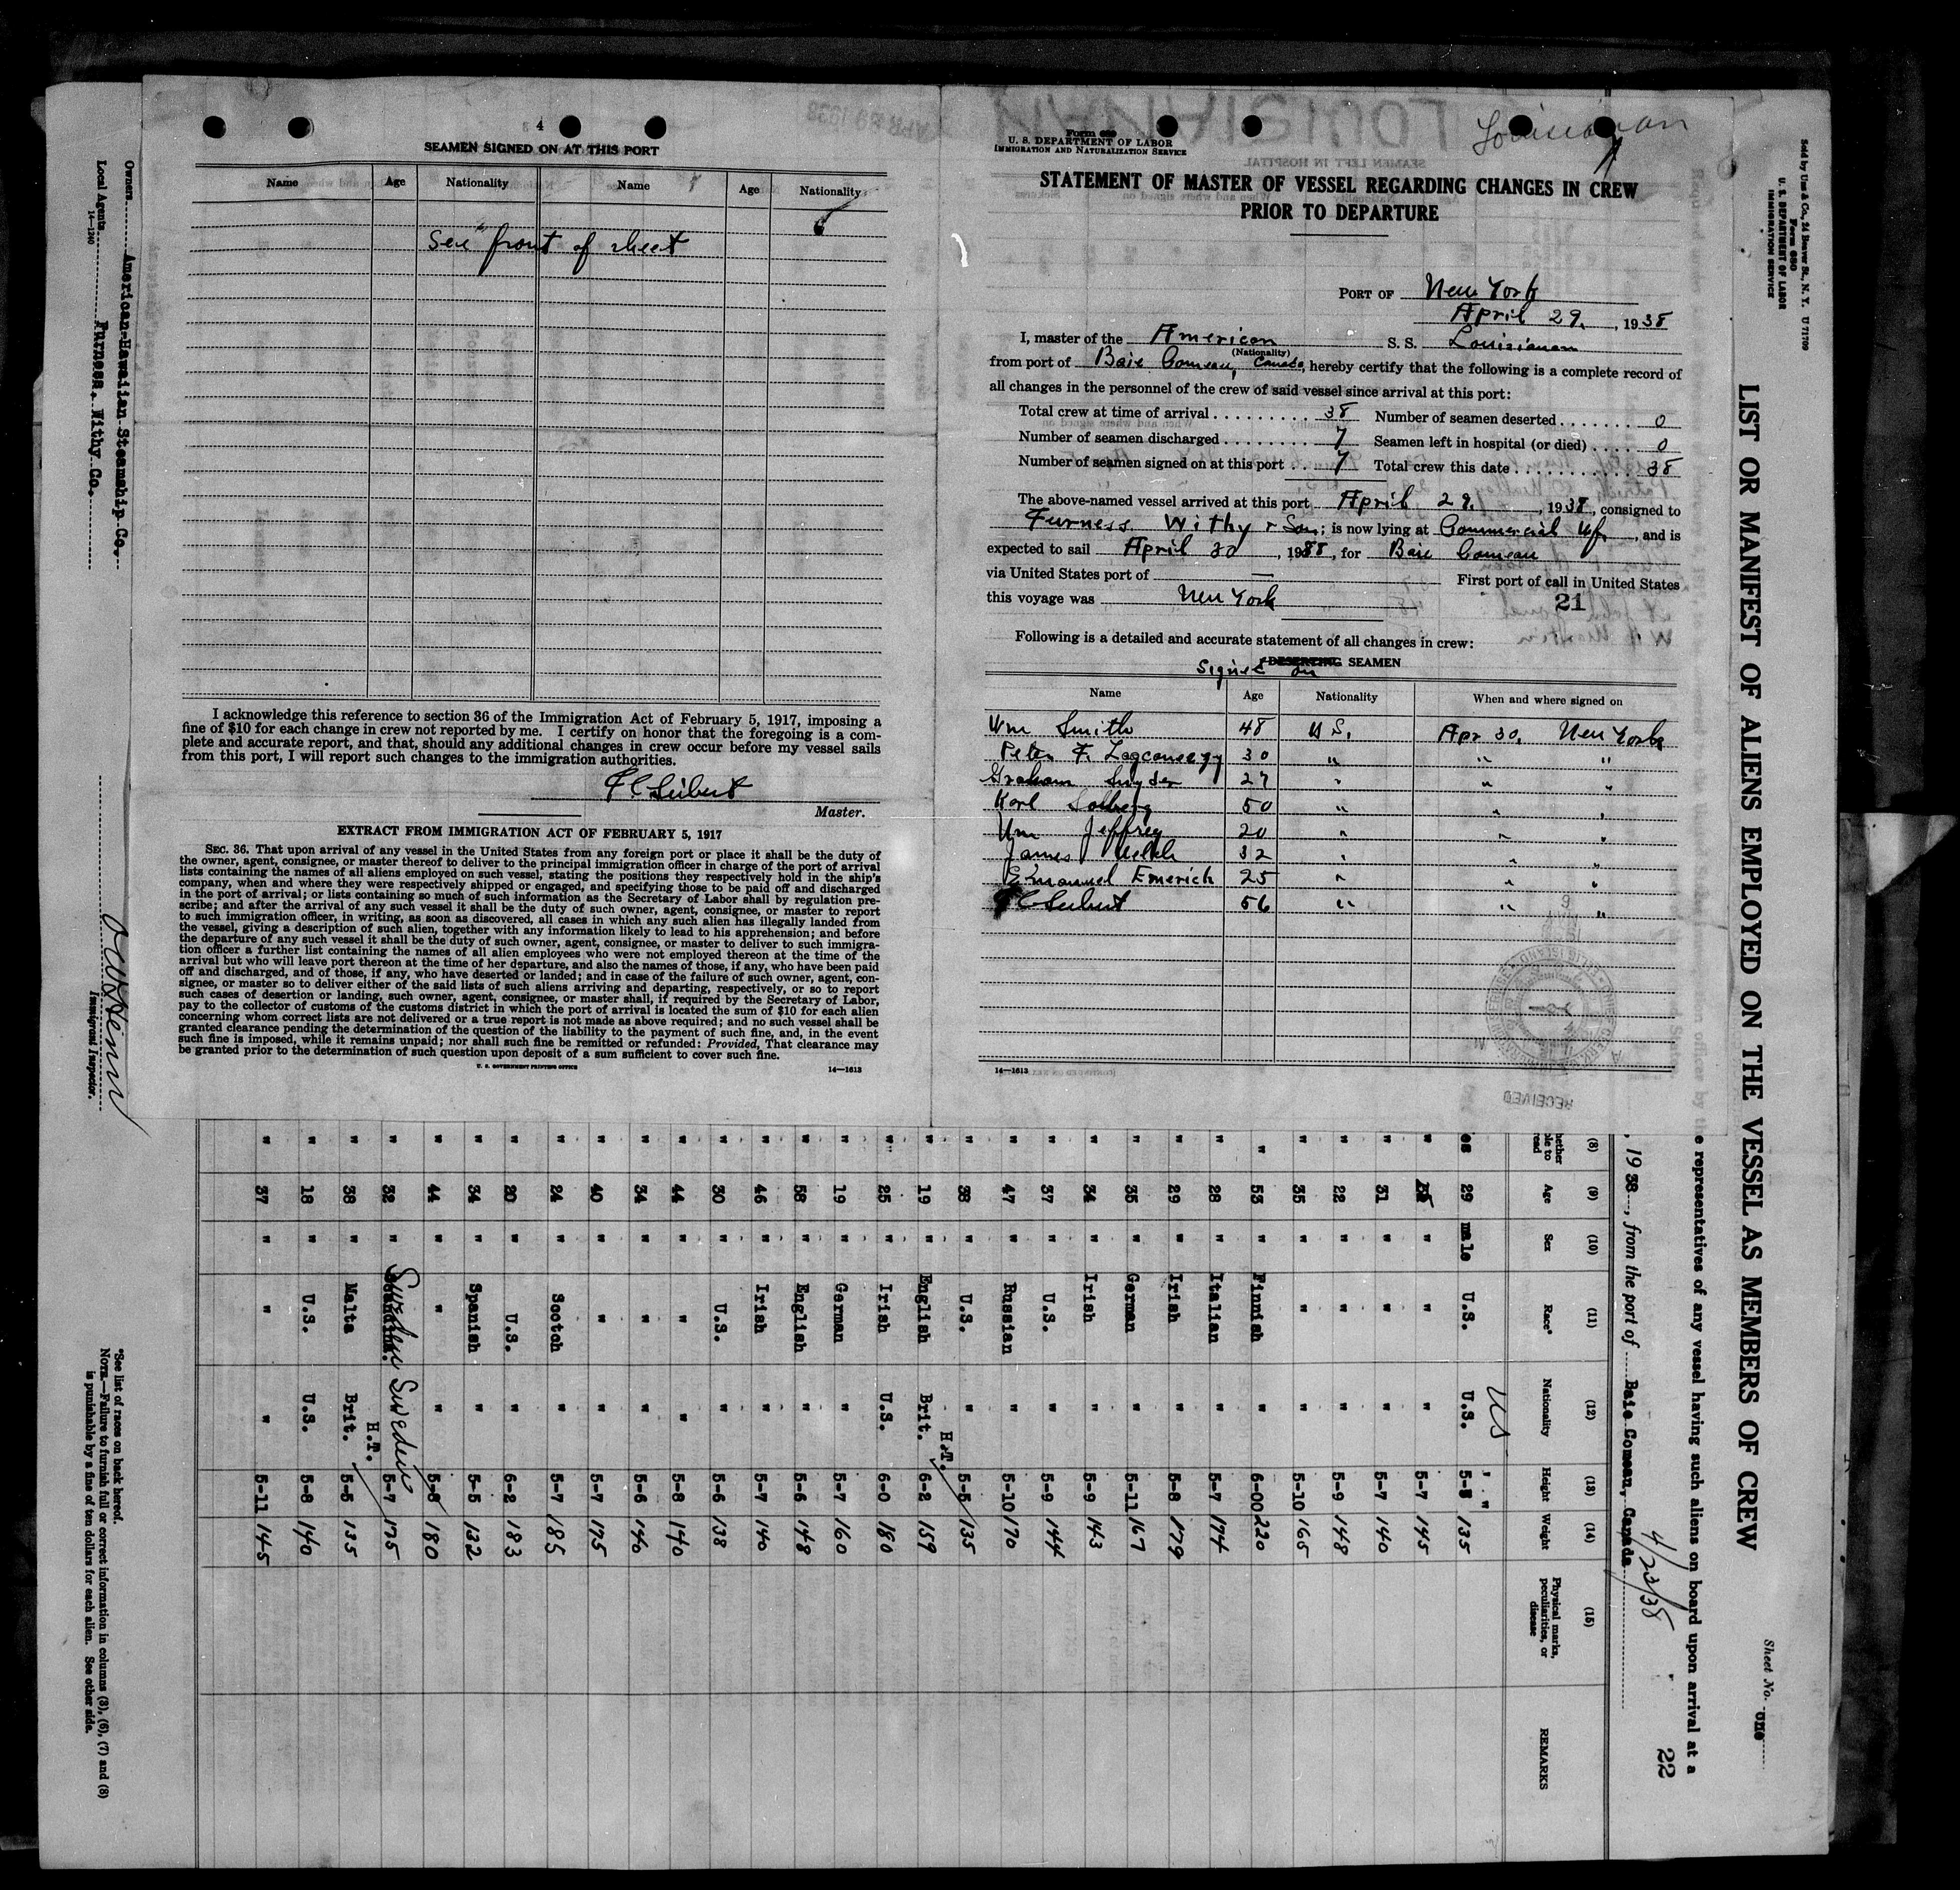 4
SEAMEN SIGNED ON AT THIS PORT
Name Age Nationality Name Age Nationality
See front of sheet
I acknowledge this reference to section 36 of the Immigration Act of February 5, 1917, imposing a
fine of $10 for each change in crew not reported by me. I certify on honor that the foregoing is a com-
plete and accurate report, and that, should any additional changes in crew occur before my vessel sails
from this port, I will report such changes to the immigration authorities.
Master.
EXTRACT FROM IMMIGRATION ACT OF FEBRUARY 5, 1917
SEC. 36. That upon arrival of any vessel in the United States from any foreign port or place it shall be the duty of
the owner, agent, consignee, or master thereof to deliver to the principal immigration officer in charge of the port of arrival
lists containing the names of all aliens employed on such vessel, stating the positions they respectively hold in the ship's
company, when and where they were respectively shipped or engaged, and specifying those to be paid off and discharged
in the port of arrival; or lists containing so much of such information as the Secretary of Labor shall by regulation pre-
scribe; and after the arrival of any such vessel it shall be the duty of such owner, agent, consignee, or master to report
to such immigration officer, in writing, as soon as discovered, all cases in which any such alien has illegally landed from
the vessel, giving a description of such alien, together with any information likely to lead to his apprehension; and before
the departure of any such vessel it shall be the duty of such owner, agent, consignee, or master to deliver to such immigra-
tion officer a further list containing the names of all alien employees who were not employed thereon at the time of the
arrival but who will leave port thereon at the time of her departure, and also the names of those, if any, who have been paid
off and discharged, and of those, if any, who have deserted or landed; and in case of the failure of such owner, agent, con-
signee, or master so to deliver either of the said lists of such aliens arriving and departing, respectively, or so to report
such cases of desertion or landing, such owner, agent, consignee, or master shall, if required by the Secretary of Labor,
pay to the collector of customs of the customs district in which the port of arrival is located the sum of $10 for each alien
concerning whom correct lists are not delivered or a true report is not made as above required; and no such vessel shall be
granted clearance pending the determination of the question of the liability to the payment of such fine, and, in the event
such fine is imposed, while it remains unpaid; nor shall such fine be remitted or refunded: Provided, That clearance may
be granted prior to the determination of such question upon deposit of a sum sufficient to cover such fine.
U. S. GOVERNMENT PRINTING OFFICE 14—1613
Louisianan
Form 689
U. S. DEPARTMENT OF LABOR
IMMIGRATION AND NATURALIZATION SERVICE
STATEMENT OF MASTER OF VESSEL REGARDING CHANGES IN CREW
PRIOR TO DEPARTURE
PORT OF New York
April 29, 1938
I, master of the American S. S. Louisianan
(Nationality)
from port of Baie Comeau, Canada, hereby certify that the following is a complete record of
all changes in the personnel of the crew of said vessel since arrival at this port:
Total crew at time of arrival 38 Number of seamen deserted 0
Number of seamen discharged 7 Seamen left in hospital (or died) 0
Number of seamen signed on at this port 7 Total crew this date 38
The above-named vessel arrived at this port April 29, 1938, consigned to
Furness Withy & Son; is now lying at Commercial Wf, and is
expected to sail April 30, 1938, for Baie Comeau
via United States port of — First port of call in United States
this voyage was New York 21
Following is a detailed and accurate statement of all changes in crew:
Signed on DESERTING SEAMEN
Name Age Nationality When and where signed on
Wm Smith 48 U S. Apr 30, New York
Peter F. 30 " " "
Graham Snyder 27 " " "
Karl Solberg 50 " " "
Wm Jeffrey 20 " " "
James 32 " " "
Emanuel Emerich 25 " " "
56 " " "
14—1613
RECEIVED
Sold by Unz & Co., 24 Beaver St., N. Y. U 71709
Form 680
U. S. DEPARTMENT OF LABOR
IMMIGRATION SERVICE
LIST OR MANIFEST OF ALIENS EMPLOYED ON THE VESSEL AS MEMBERS OF CREW
Sheet No. one
e representatives of any vessel having such aliens on board upon arrival at a
22
, 1938, from the port of Baie Comeau, Canada 4/23/38
(8) (9) (10) (11) (12) (13) (14) (15)
Age Sex Race* Nationality Height Weight Physical marks, peculiarities, or disease REMARKS
US
es 29 male U.S. U.S. 5-8 135
" " " " 5-7 145
" 31 " " " 5-7 140
" 22 " " " 5-9 148
" 35 " " " 5-10 165
" 53 " Finnish " 6-00 220
" 28 " Italian " 5-7 174
" 29 " Irish " 5-8 179
" 35 " German " 5-11 167
" 34 " Irish " 5-9 143
" 37 " U.S. " 5-9 144
" 47 " Russian " 5-10 170
" 38 " U.S. " 5-5 135
H.T.
" 19 " English Brit. 6-2 159
" 25 " Irish U.S. 6-0 180
" 19 " German " 5-7 160
" 58 " English " 5-6 148
" 46 " Irish " 5-7 140
" 30 " U.S. " 5-6 138
" 44 " " " 5-8 140
" 34 " " " 5-6 146
" 40 " " " 5-7 175
" 24 " Scotch " 5-7 185
" 20 " U.S. " 6-2 183
" 34 " Spanish " 5-5 132
" 44 " " " 5-6 180
" 32 " Sweden Sweden 5-7 175
H.T.
" 38 " Malta Brit. 5-5 135
" 18 " U.S. U.S. 5-8 140
" 37 " " " 5-11 145
Owners American-Hawaiian Steamship Co.
Local Agents Furness, Withy Co.
14—1240
Immigrant Inspector.
*See list of races on back hereof.
NOTE.—Failure to furnish full or correct information in columns (3), (6), (7) and (8)
is punishable by a fine of ten dollars for each alien. See other side.